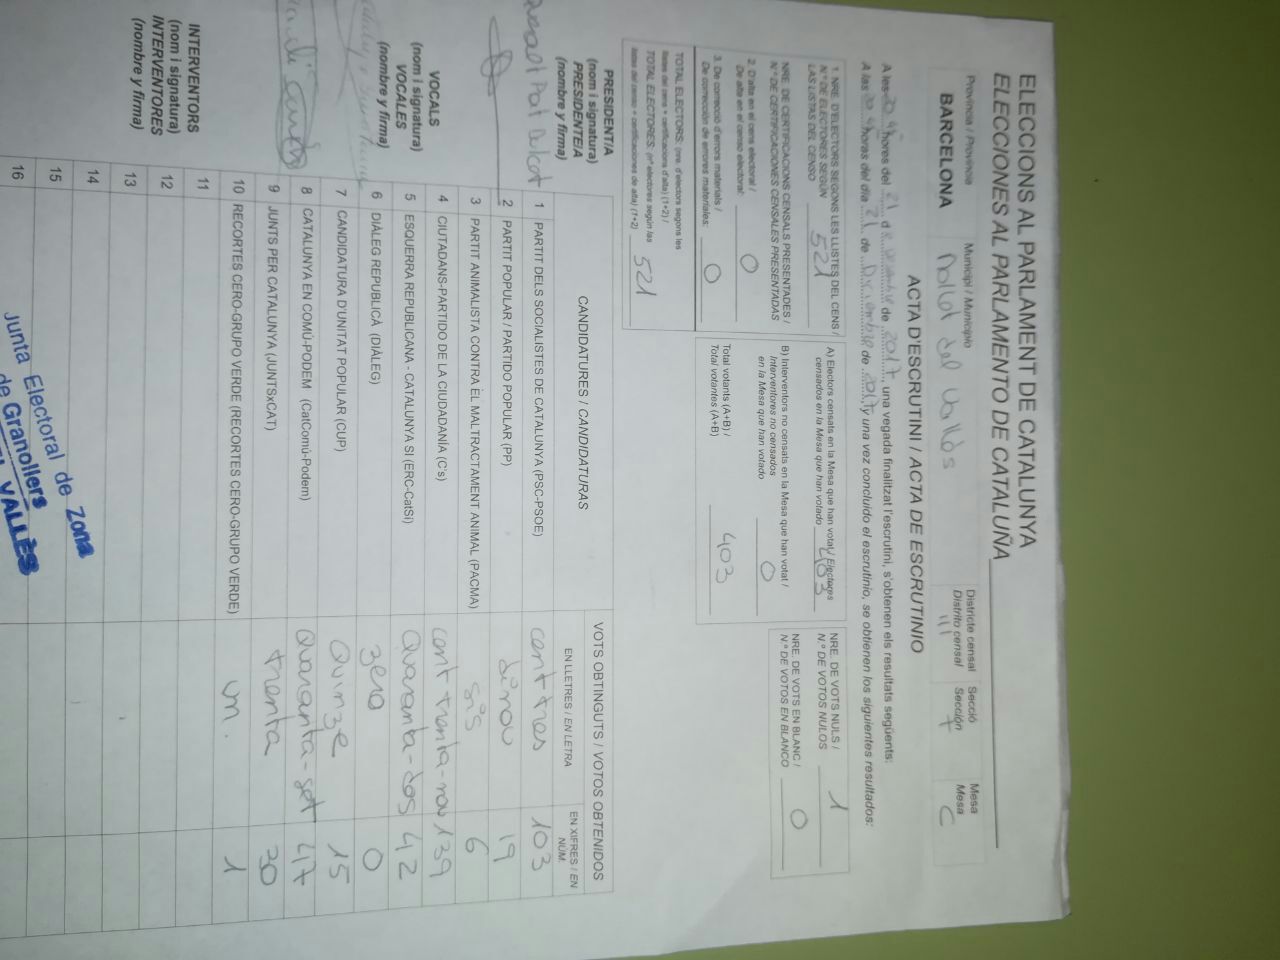 ELECCIONS AL PARLAMENT DE CATALUNYA
ELECCIONES AL PARLAMENTO DE CATALUÑA
Província / Provincia
BARCELONA
Municipi / Municipio
Mollet del Vallès
Districte censal
Distrito censal
III
Secció
Sección
Mesa
Mesa
C
ACTA D'ESCRUTINI / ACTA DE ESCRUTINIO
A les hores del 21 d de 2017, una vegada finalitzat l'escrutini, s'obtenen els resultats següents:
A las horas del día 21 de Diciembre de 2017 y una vez concluido el escrutinio, se obtienen los siguientes resultados:
1. NRE. D'ELECTORS SEGONS LES LLISTES DEL CENS /
N.º DE ELECTORES SEGÚN
LAS LISTAS DEL CENSO 521
NRE. DE CERTIFICACIONS CENSALS PRESENTADES /
N.º DE CERTIFICACIONES CENSALES PRESENTADAS
2. D'alta en el cens electoral /
De alta en el censo electoral: 0
3. De correcció d'errors materials /
De corrección de errores materiales: 0
TOTAL ELECTORS: (nre. d'electors segons les
llistes del cens + certificacions d'alta) (1+2) /
TOTAL ELECTORES: (nº electores según las
listas del censo + certificaciones de alta) (1+2) 521
A) Electors censats en la Mesa que han votat / Electores
censados en la Mesa que han votado 403
B) Interventors no censats en la Mesa que han votat /
Interventores no censados
en la Mesa que han votado 0
Total votants (A+B) /
Total votantes (A+B) 403
NRE. DE VOTS NULS /
N.º DE VOTOS NULOS 1
NRE. DE VOTS EN BLANC /
N.º DE VOTOS EN BLANCO 0
PRESIDENT/A
(nom i signatura)
PRESIDENTE/A
(nombre y firma)
VOCALS
(nom i signatura)
VOCALES
(nombre y firma)
INTERVENTORS
(nom i signatura)
INTERVENTORES
(nombre y firma)
CANDIDATURES / CANDIDATURAS
VOTS OBTINGUTS / VOTOS OBTENIDOS
EN LLETRES / EN LETRA
EN XIFRES / EN NÚM.
1 PARTIT DELS SOCIALISTES DE CATALUNYA (PSC-PSOE) cent tres 103
2 PARTIT POPULAR / PARTIDO POPULAR (PP) dinou 19
3 PARTIT ANIMALISTA CONTRA EL MALTRACTAMENT ANIMAL (PACMA) sis 6
4 CIUTADANS-PARTIDO DE LA CIUDADANÍA (C's) cent trenta-nou 139
5 ESQUERRA REPUBLICANA - CATALUNYA SI (ERC-CatSí) Quaranta-dos 42
6 DIÀLEG REPUBLICÀ (DIÀLEG) zero 0
7 CANDIDATURA D'UNITAT POPULAR (CUP) Quinze 15
8 CATALUNYA EN COMÚ-PODEM (CatComú-Podem) Quaranta-set 47
9 JUNTS PER CATALUNYA (JUNTSxCAT) trenta 30
10 RECORTES CERO-GRUPO VERDE (RECORTES CERO-GRUPO VERDE) un. 1
11
12
13
14
15
16
Junta Electoral de Zona
de Granollers
VALLÈS